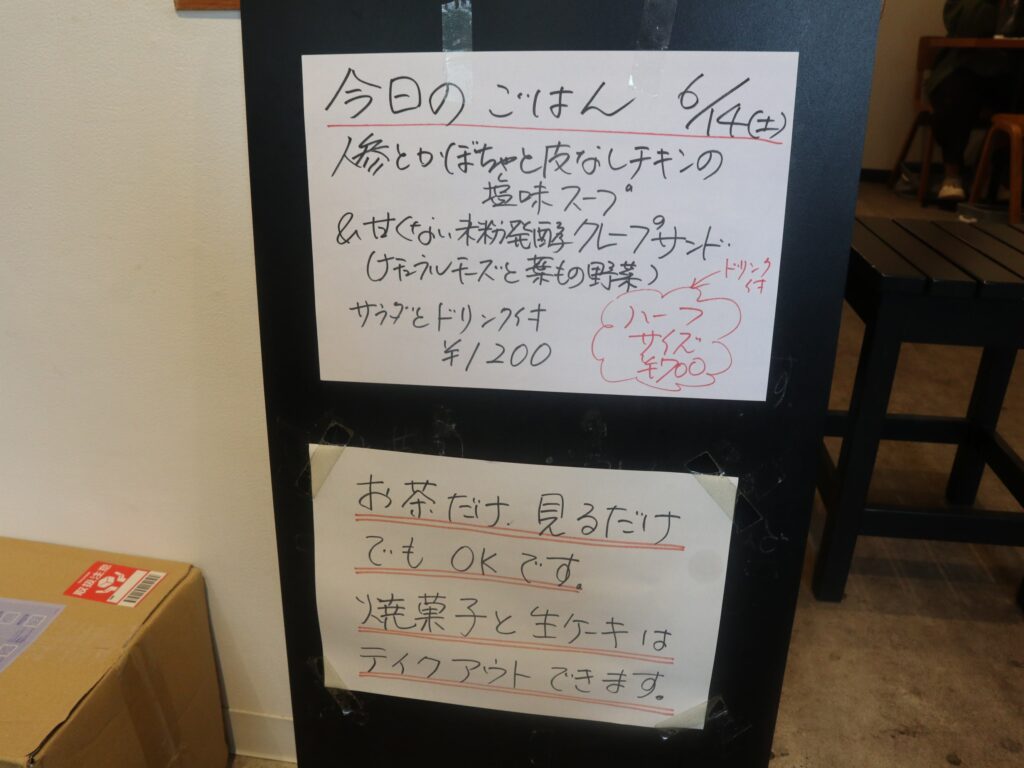 今日の ごはん 6/14(土)
人参とかぼちゃと皮なしチキンの
塩味スープ
&甘くない米粉発酵クレープサンド
(ナチュラルチーズと葉もの野菜)
サラダとドリンク付
¥1200
ドリンク
付
ハーフ
サイズ
¥700
お茶だけ、見るだけ
でも OKです。
焼菓子と生ケーキは
テイクアウトできます。
取扱注意